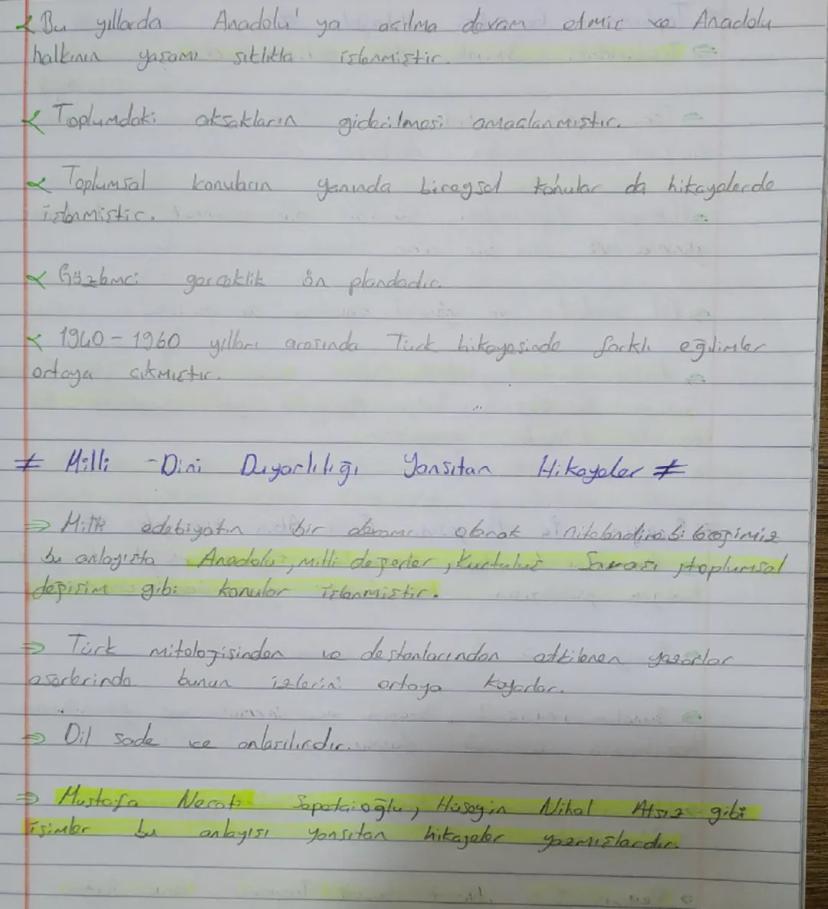 Bu yıllarda Anadolu'ya açılma devam etmiş ve Anadolu
halkının yaşamı sıklıkla işlenmiştir.
Toplumdaki aksakların giderilmesi amaçlanmıştır.
Toplumsal konuların yanında bireysel konular da hikayelerde
işlenmiştir.
Gözlemci gerçeklik ön plandadır.
1940-1960 yılları arasında Türk hikayesinde farklı eğilimler
ortaya çıkmıştır.
≠ Milli - Dini Duyarlılığı Yansıtan Hikayeler ≠
⇒ Milli edebiyatın bir devamı olarak nitelendirebileceğimiz
bu anlayışta Anadolu, milli değerler, Kurtuluş Savaşı, toplumsal
değişim gibi konular işlenmiştir.
⇒ Türk mitolojisinden ve destanlarından etkilenen yazarlar
eserlerinde bunun izlerini ortaya koyarlar.
⇒ Dil sade ve anlaşılırdır.
⇒ Mustafa Necati Sepetçioğlu, Hüseyin Nihal Atsız gibi
isimler bu anlayışı yansıtan hikayeler yazmışlardır.